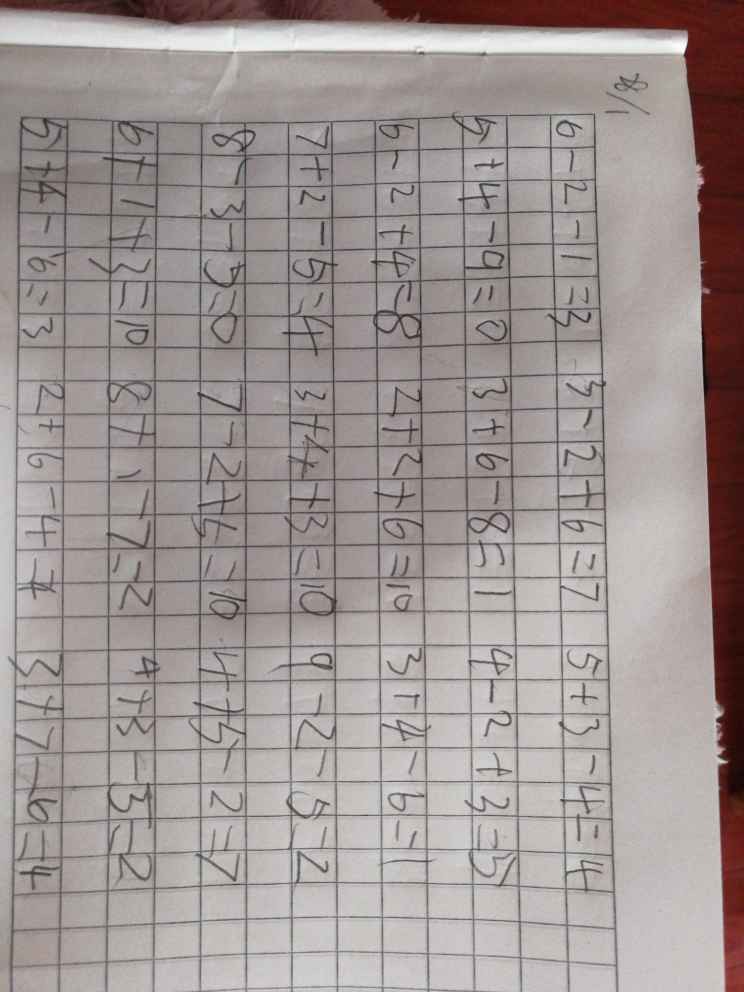 8/1
6-2-1=3 3-2+6=7 5+3-4=4
5+4-9=0 3+6-8=1 4-2+3=5
6-2+4=8 2+2+6=10 3+4-6=1
7+2-5=4 3+4+3=10 9-2-5=2
8-3-5=0 7-2+5=10 4+5-2=7
6+1+3=10 8+1-7=2 4+3-5=2
5+4-6=3 2+6-4=4 3+7-6=4